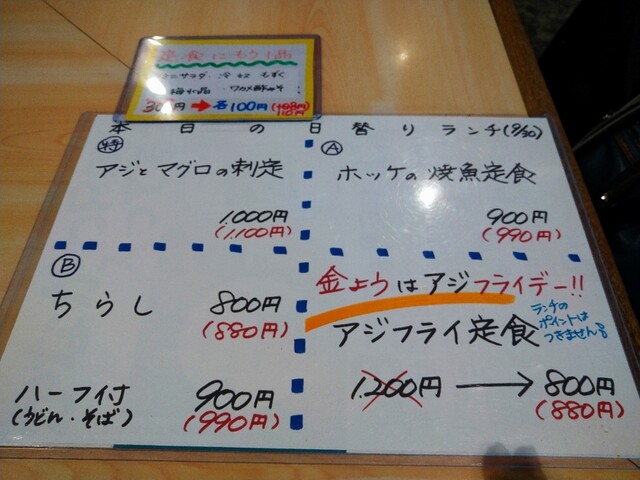 定食にもう1品
カニサラダ・冷奴 もずく
梅水晶 ワカメ酢
300円 → 各100円(+税8円)
110円
本日の日替りランチ(8/30)
特
アジとマグロの刺定
1.000円
(1.100円)
A
ホッケの焼魚定食
900円
(990円)
B
ちらし 800円
(880円)
ハーフ付 900円
(うどん・そば) (990円)
金ようはアジフライデー!!
アジフライ定食
ランチの
ポイントは
つきません
1.200円 → 800円
(880円)